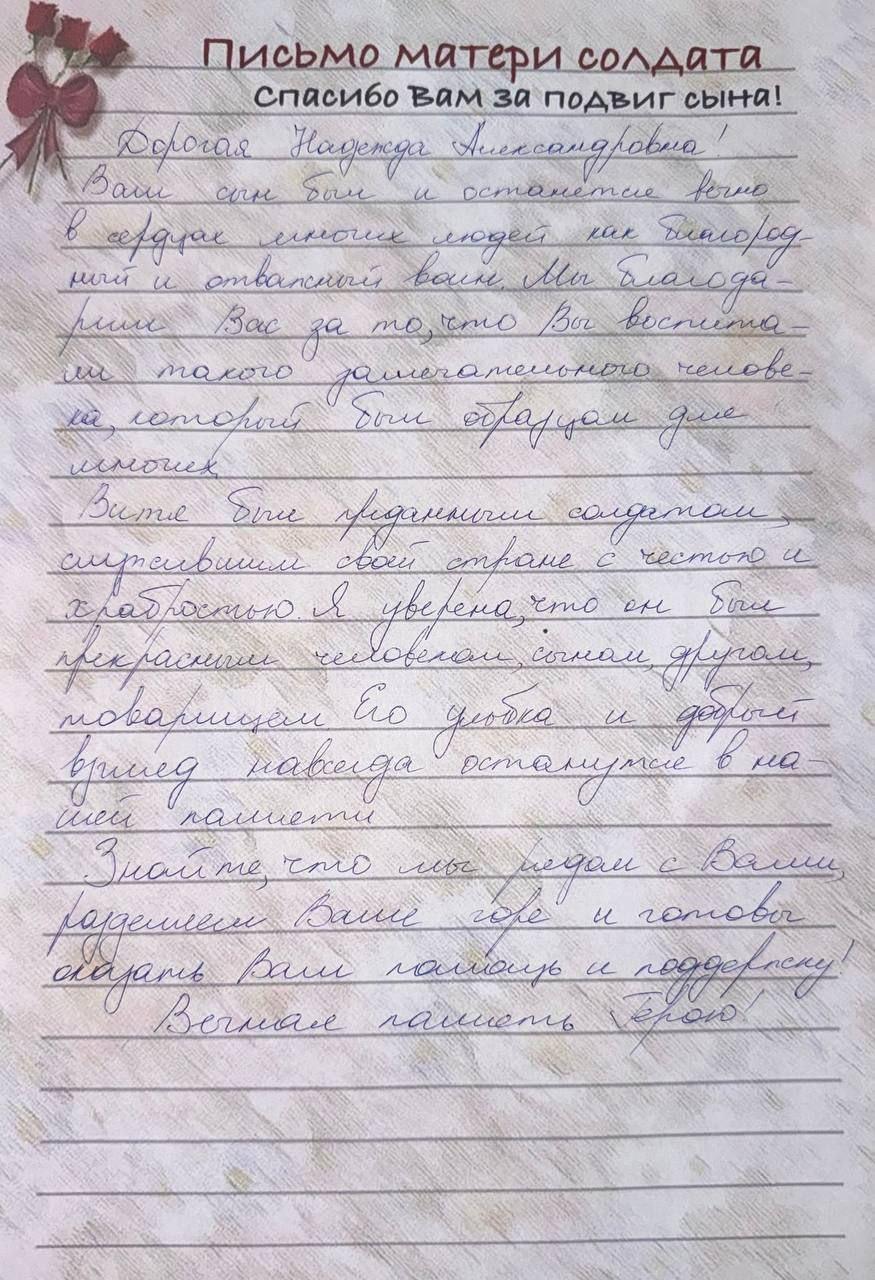 Письмо матери солдата
Спасибо Вам за подвиг сына!
Дорогая Надежда Александровна!
Ваш сын был и останется вечно
в сердцах многих людей как благород-
ный и отважный воин. Мы благода-
рим Вас за то, что Вы воспита-
ли такого замечательного челове-
ка, который был образцом для
многих
Витя был преданным солдатом,
служившим своей стране с честью и
храбростью. Я уверена, что он был
прекрасным человеком, сыном, другом,
товарищем Его улыбка и добрый
взгляд навсегда останутся в на-
шей памяти
Знайте, что мы рядом с Вами,
разделяем Ваше горе и готовы
оказать Вам помощь и поддержку!
Вечная память Герою!